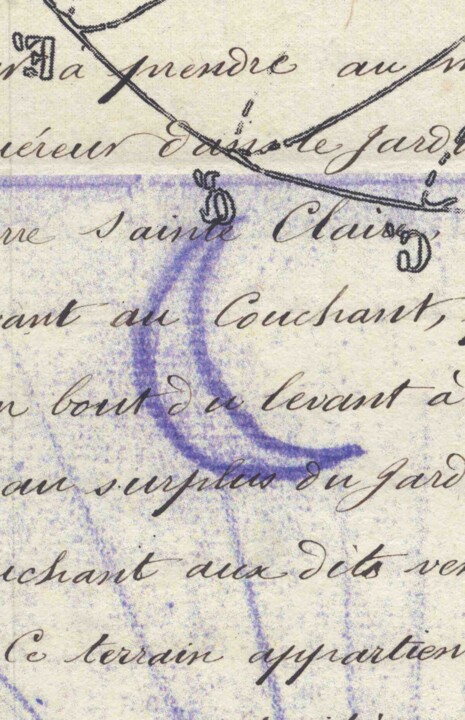 à prendre au
dans le Jard
Sainte Claire,
ant au Couchant,
bout du levant à
au surplus du Jard
uchant aux dits ven
Ce terrain appartien